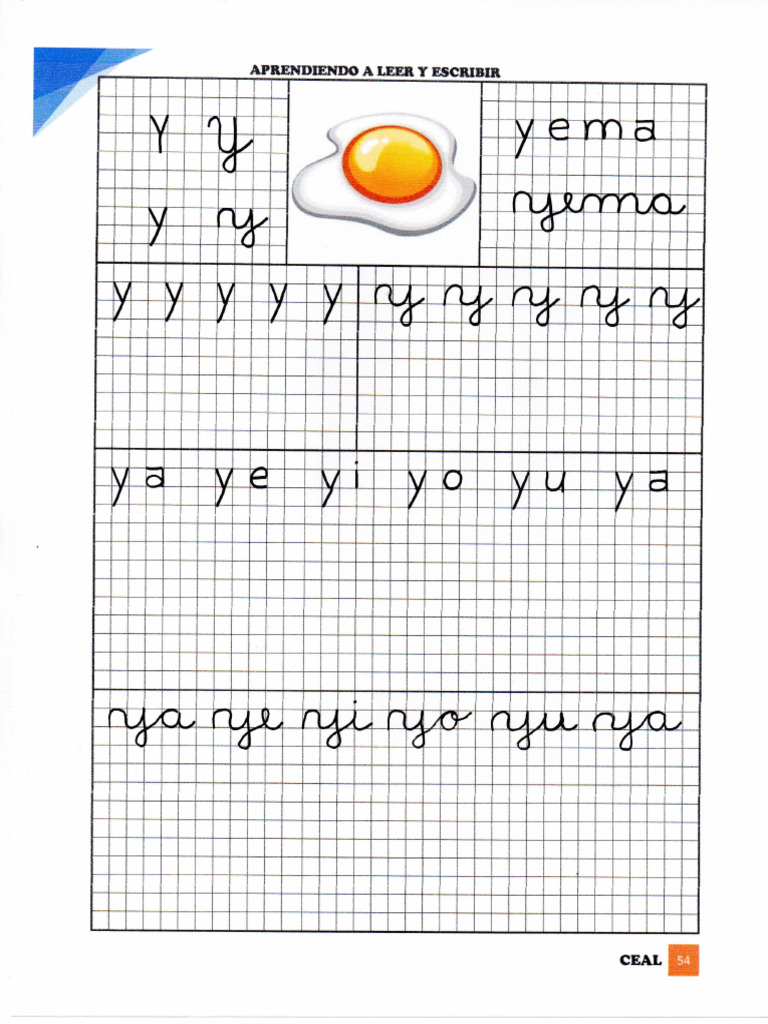 APRENDIENDO A LEER Y ESCRIBIR
Y Y
y y
yema
yema
y y y y y y y y y y
ya ye yi yo yu ya
ya ye yi yo yu ya
CEAL 54